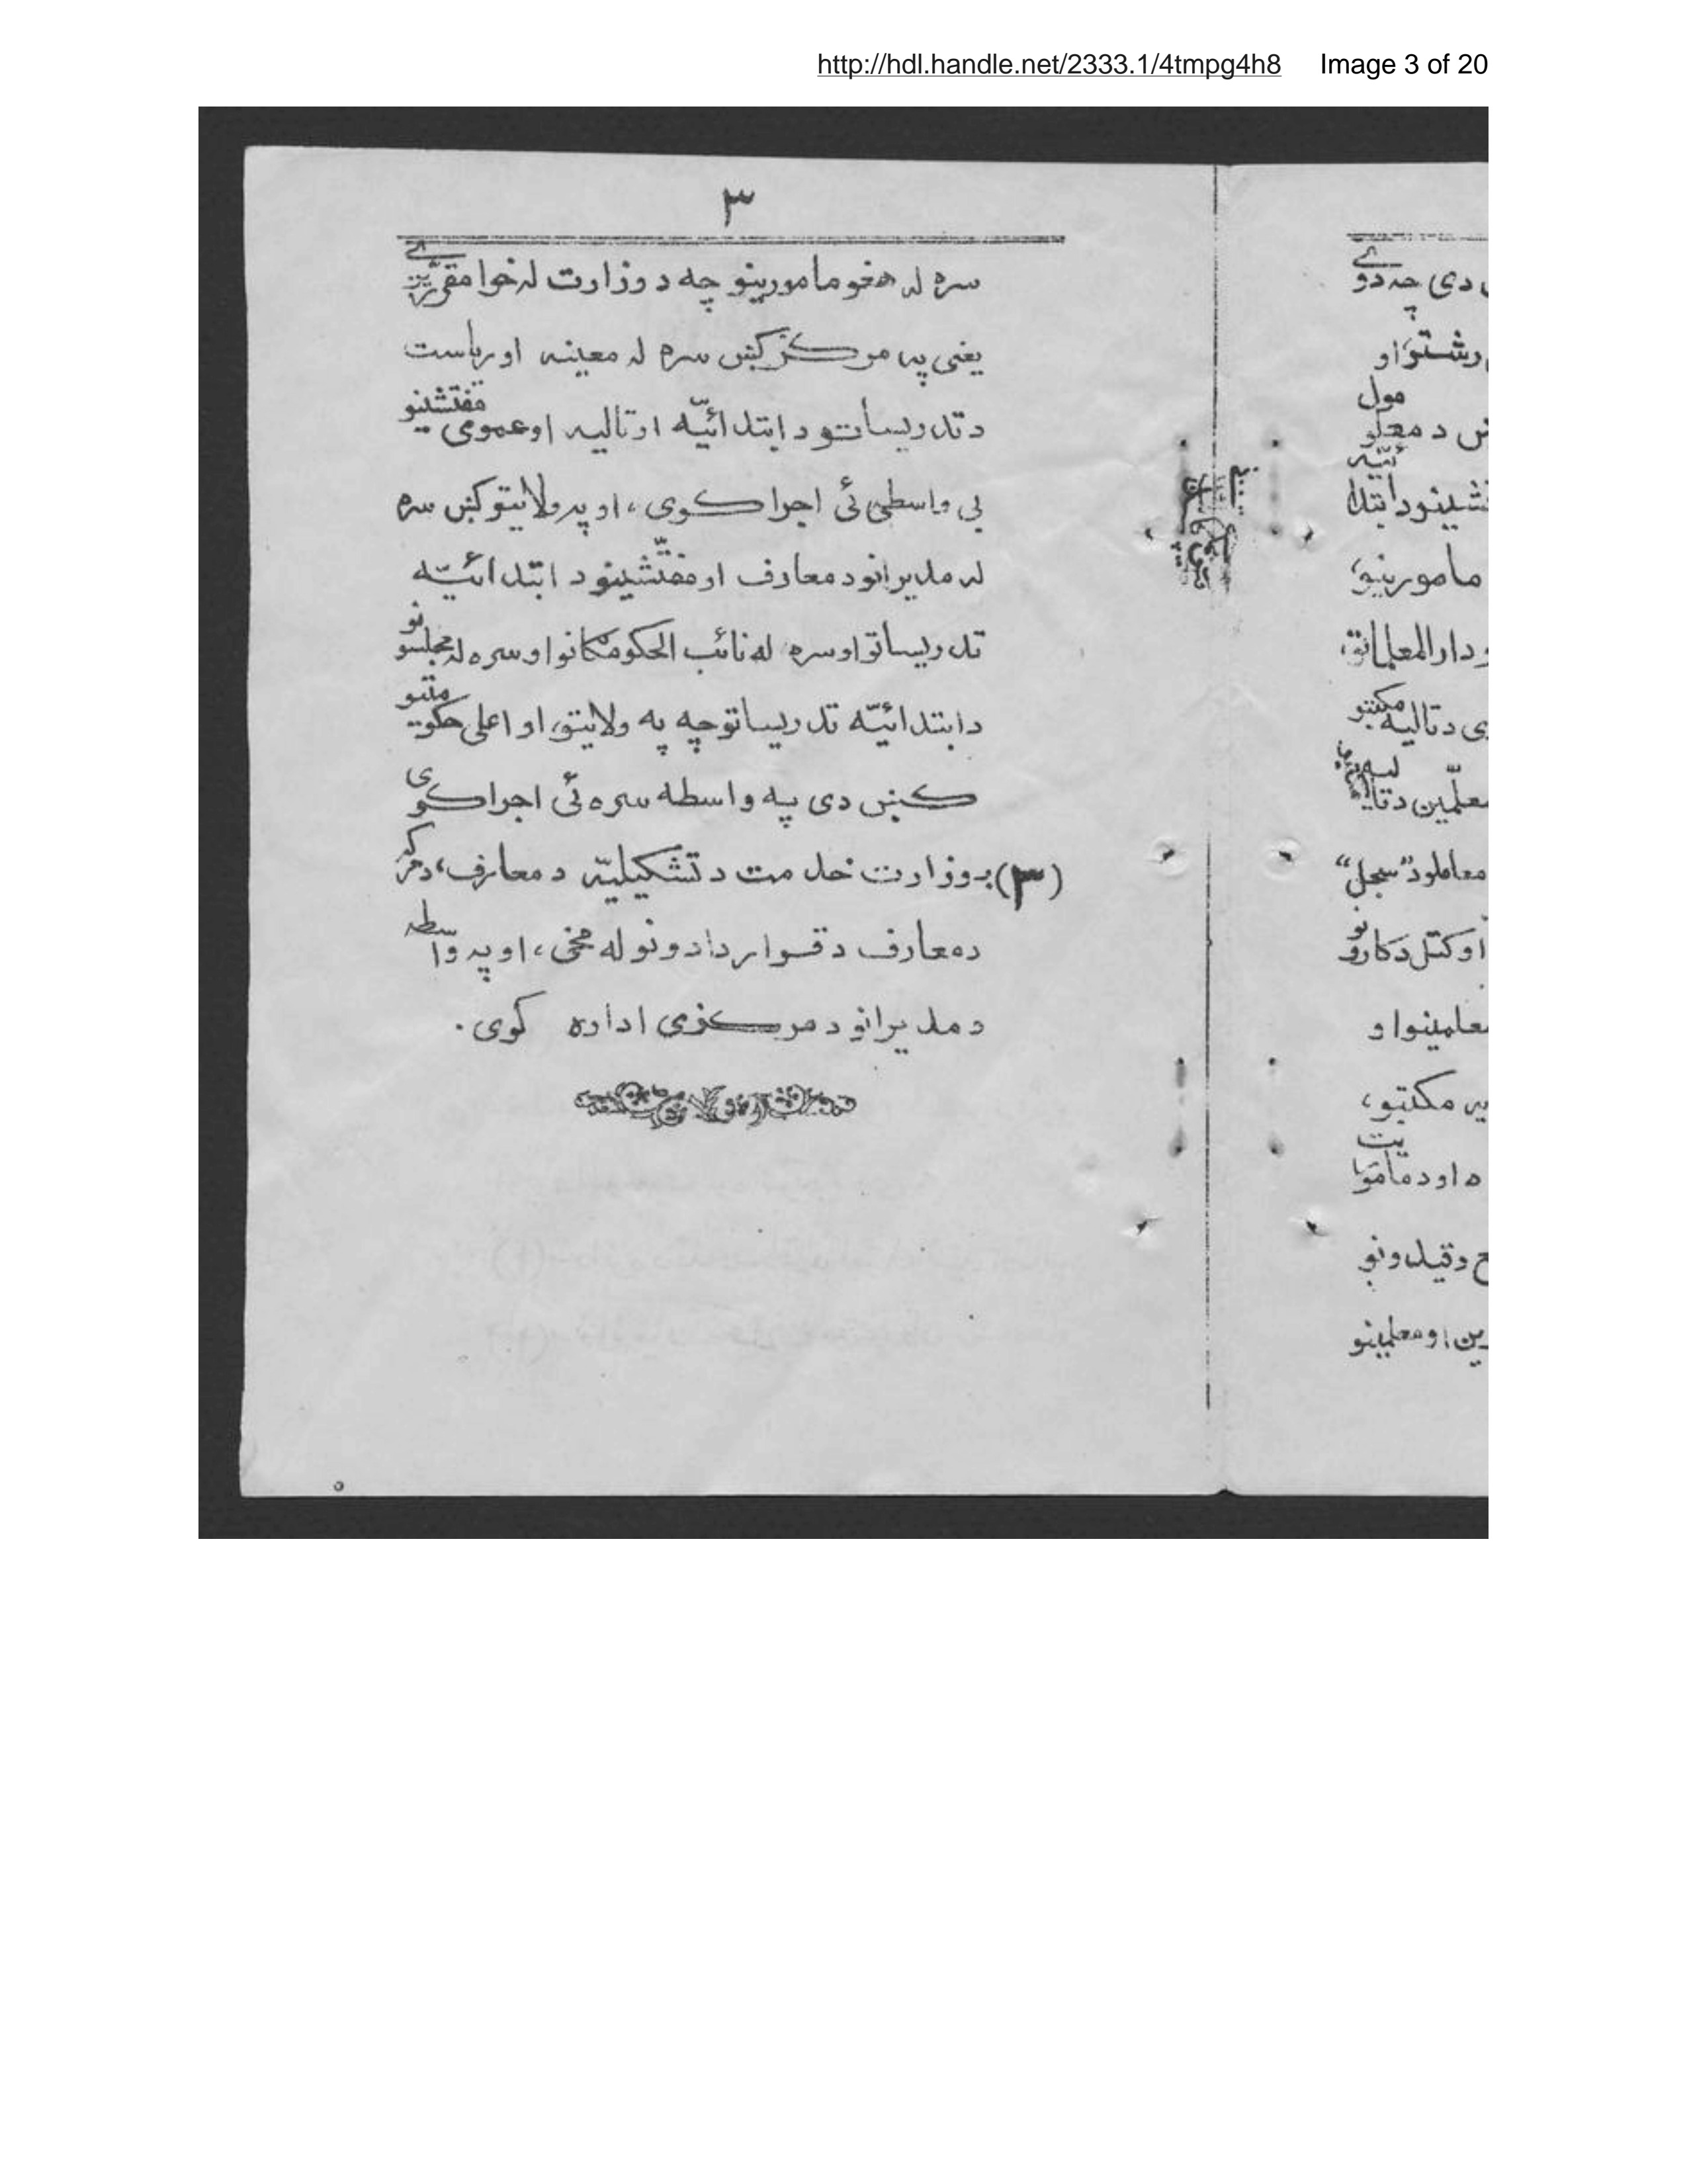 http://hdl.handle.net/2333.1/4tmpg4h8 Image 3 of 20
٣
سره له هغو مامورینو چه د وزارت له خوا مقرریږی
یعنی په مرکز کښ سره له معینه او ریاست
د تدریساتو د ابتدائیّه او تالیه او عمومی مفتشینو
بی واسطی ئی اجرا کوی، او په ولایتو کښ سره
له مدیرانو د معارف او مفتّشینو د ابتدائیّه
تدریساتو او سره له نائب الحکومکانو او سره له مجلسونو
د ابتدائیّه تدریساتو چه په ولایتو، او اعلی حکومتیو
کښ دی په واسطه سره ئی اجرا کوی
(٣) :- وزارت خدمت د تشکیلیّه د معارف، د مرکه
د معارف د قراردادونو له مخی، او په واسطه
د مدیرانو د مرکزی اداره کوی.
دی چه دوے
رشتو، او
د معلومول
تشینو د ابتدائیّه
مامورینو،
دارالمعلماتو،
ی د تالیه مکتبو
معلّمین د تالیه
معاملو د "سجل"
او کتل د کارونو
معلمینو او
یه مکتبو،
ه او د مامویت
ح د قیدونو
ین او معلمینو